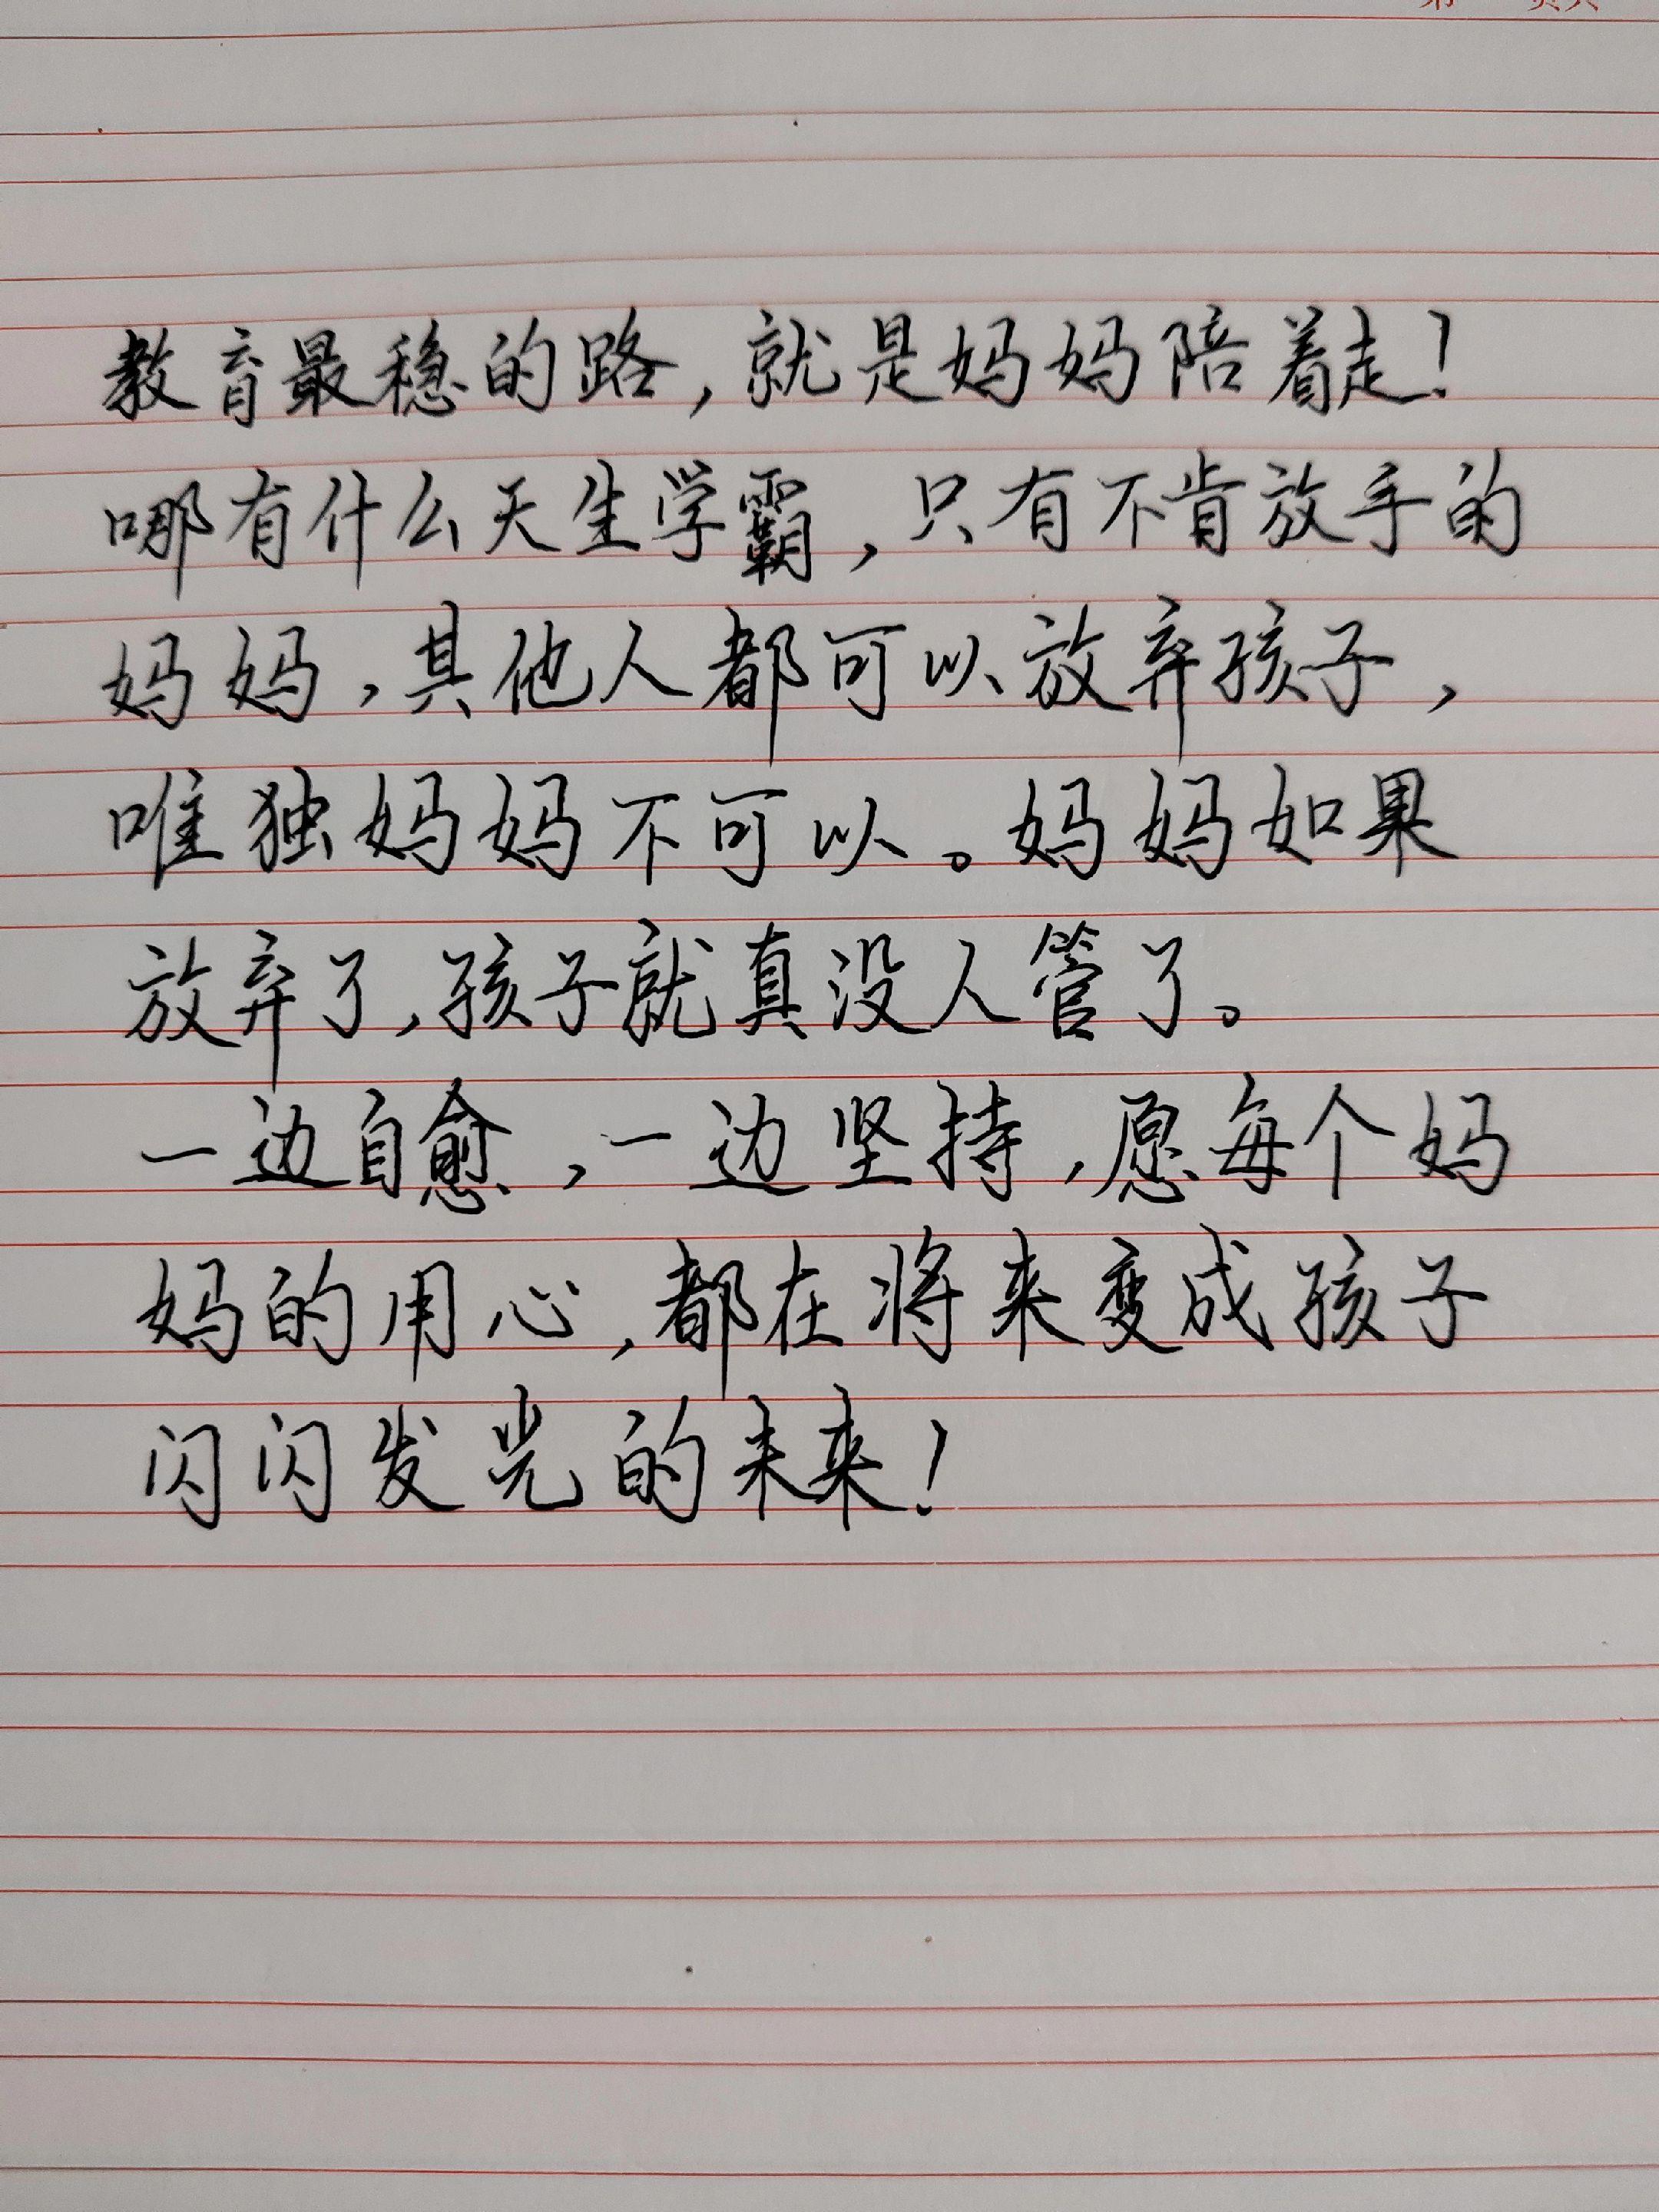 教育最稳的路,就是妈妈陪着走!
哪有什么天生学霸,只有不肯放手的
妈妈,其他人都可以放弃孩子,
唯独妈妈不可以。妈妈如果
放弃了,孩子就真没人管了。
一边自愈,一边坚持,愿每个妈
妈的用心,都在将来变成孩子
闪闪发光的未来!